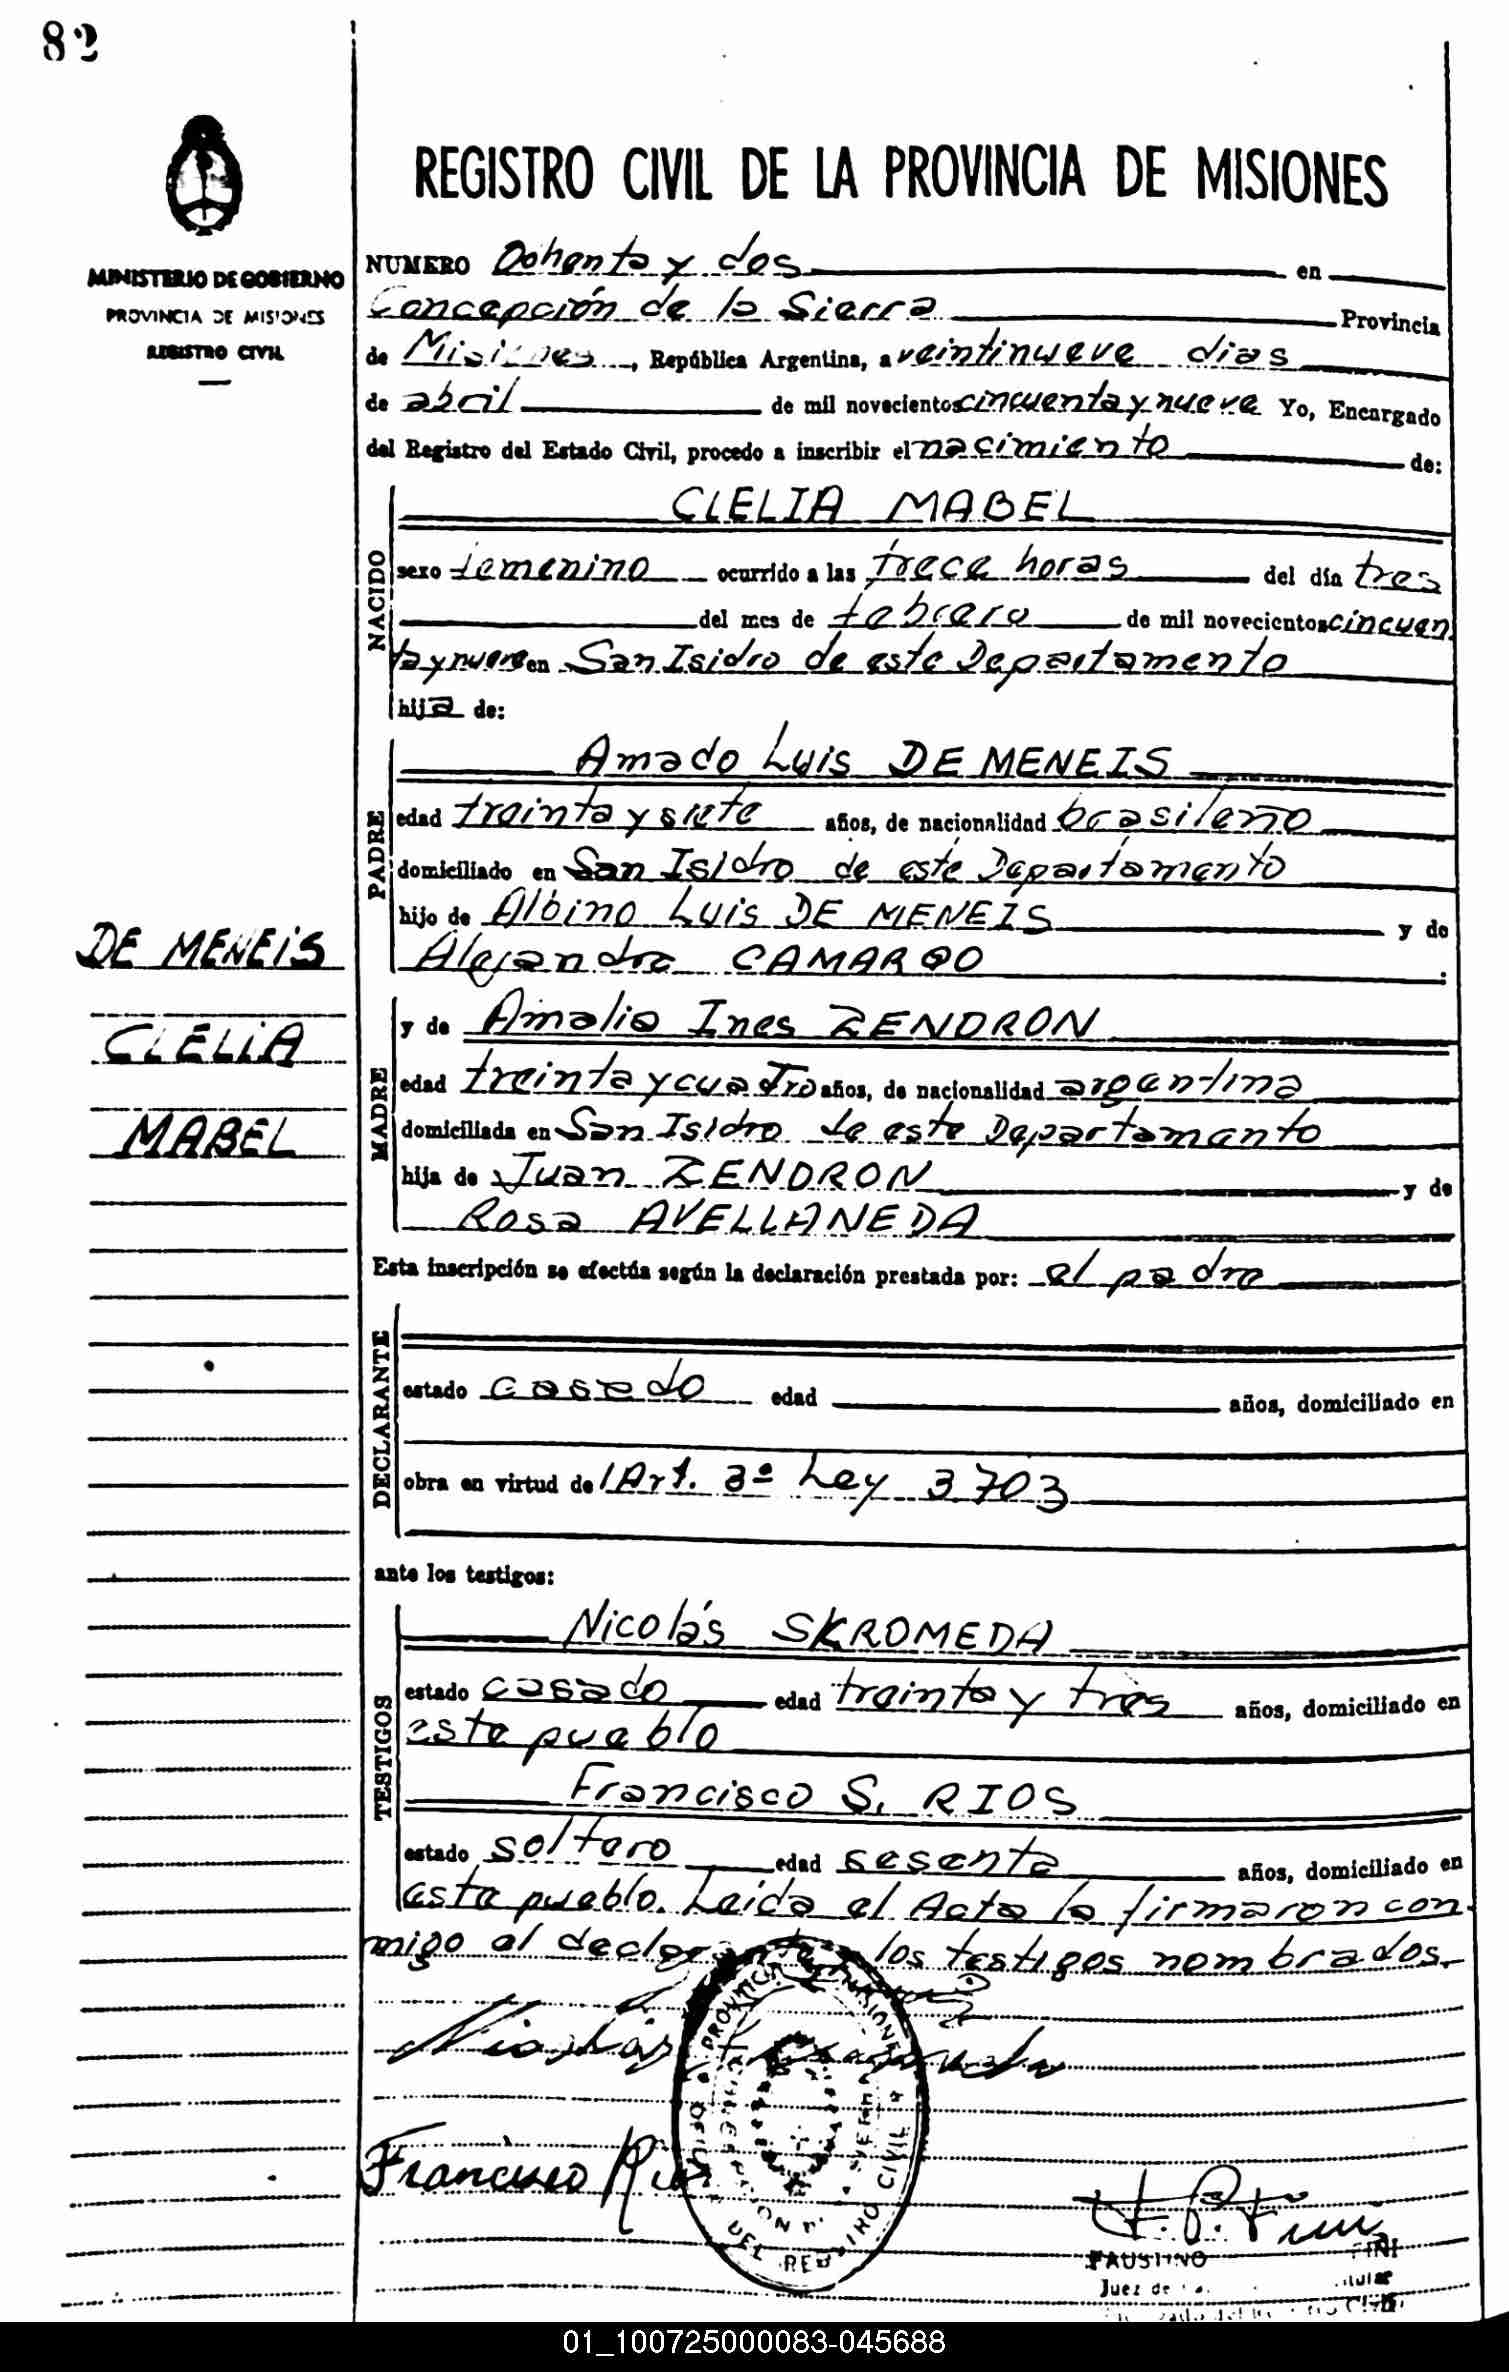 82
MINISTERIO DE GOBIERNO
PROVINCIA DE MISIONES
REGISTRO CIVIL
REGISTRO CIVIL DE LA PROVINCIA DE MISIONES
NUMERO Ochenta y dos en
Concepción de la Sierra Provincia
de Misiones, República Argentina, a veintinueve dias
de abril de mil novecientos cincuenta y nueve Yo, Encargado
del Registro del Estado Civil, procedo a inscribir el nacimiento de:
NACIDO
CLELIA MABEL
sexo femenino ocurrido a las trece horas del día tres
del mes de febrero de mil novecientos cincuen
ta y nueve en San Isidro de este Departamento
hija de:
PADRE
Amado Luis DE MENEIS
edad treinta y siete años, de nacionalidad brasileño
domiciliado en San Isidro de este Departamento
hijo de Albino Luis DE MENEIS y de
Alejandra CAMARGO
DE MENEIS
CLELIA
MABEL
MADRE
y de Amalia Ines ZENDRON
edad treinta y cuatro años, de nacionalidad argentina
domiciliada en San Isidro de este Departamento
hija de Juan ZENDRON y de
Rosa AVELLANEDA
Esta inscripción se efectúa según la declaración prestada por: el padre
DECLARANTE
estado casado edad años, domiciliado en
obra en virtud del Art. 3º Ley 3.703
ante los testigos:
TESTIGOS
Nicolás SKROMEDA
estado casado edad treinta y tres años, domiciliado en
este pueblo
Francisco S. RIOS
estado soltero edad sesenta años, domiciliado en
este pueblo. Leida el Acta la firmaron con
migo el declarante los testigos nombrados.
Nicolás
Francisco Rios
PROVINCIA MISIONES
DEL REGISTRO CIVIL
F. P. Fini
FAUSTINO FINI
Juez de
01_100725000083-045688